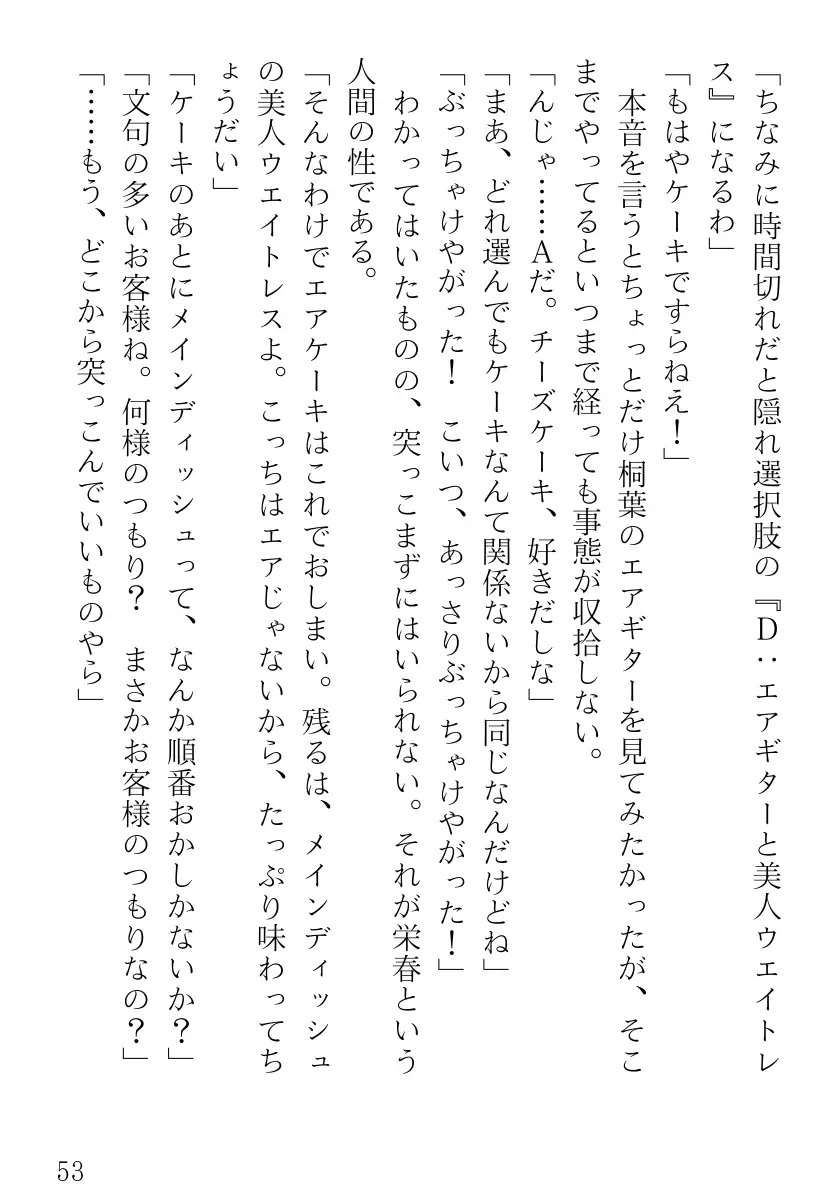 「ちなみに時間切れだと隠れ選択肢の『Ｄ：エアギターと美人ウエイトレ
ス』になるわ」
「もはやケーキですらねえ！」
　本音を言うとちょっとだけ桐葉のエアギターを見てみたかったが、そこ
までやってるといつまで経っても事態が収拾しない。
「んじゃ……Ａだ。チーズケーキ、好きだしな」
「まあ、どれ選んでもケーキなんて関係ないから同じなんだけどね」
「ぶっちゃけやがった！　こいつ、あっさりぶっちゃけやがった！」
　わかってはいたものの、突っこまずにはいられない。それが栄春という
人間の性である。
「そんなわけでエアケーキはこれでおしまい。残るは、メインディッシュ
の美人ウエイトレスよ。こっちはエアじゃないから、たっぷり味わってち
ょうだい」
「ケーキのあとにメインディッシュって、なんか順番おかしかないか？」
「文句の多いお客様ね。何様のつもり？　まさかお客様のつもりなの？」
「……もう、どこから突っこんでいいものやら」
53